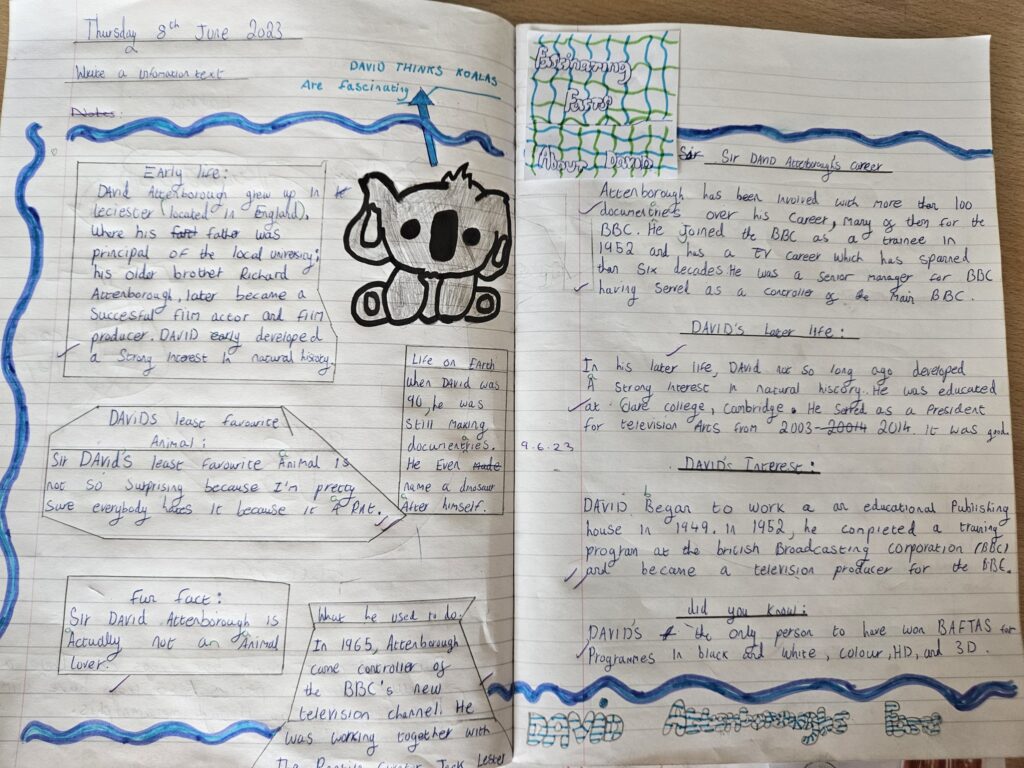 Thursday 8th June 2023
Write a infomation text
Notes:
DAVID THINKS KOALAS
Are fascinating
Early life:
DAVID Attenborough grew up in
leciester (located in England),
Where his fast father was
principal of the local university;
his older brother Richard
Attenborough, later became a
Succesful film actor and film
producer. DAVID early developed
a Strong Interest in natural history.
DAVIDS least favourite
Animal:
Sir DAVID's least favourite Animal is
not so Surprising because I'm pretty
Sure everybody hates It because it A RAt.
Life on Earth
When DAVID was
90, he was
Still making
documentries.
He Even made
name a dinosaur
After himself.
Fun Fact:
Sir DAVID Attenborough is
Actually not an Animal
lover.
What he used to do:
In 1965, Attenborough
came controller of
the BBC's new
television channel. He
was working together with
Jack Lester
Fascinating
Facts
About
Sir Sir DAVID Attenborough's career
Attenborough has been involved with more than 100
documentries over his career, Many of them for the
BBC. He joined the BBC as a trainee in
1952 and has a TV career which has spanned
than Six decades He was a Senior manager for BBC
having Served as a controller of the Main BBC.
DAVID'S later life:
In his later life, DAVID not so long ago developed
A Strong interest In natural history. He was educated
at Clare college, Cambridge. He as a President
for television Arts from 2003-20014 2014. It was good.
9.6.23
DAVID's Interest:
DAVID Began to work a an educational Publishing
b
house in 1949. In 1952, he completed a training
program at the british Broadcasting corporation (BBC)
and became a television producer for the BBC.
did you know:
DAVID'S the only person to have won BAFTAS for
Programmes In black and white, colour, HD, and 3D.
DAVID Attenborough's